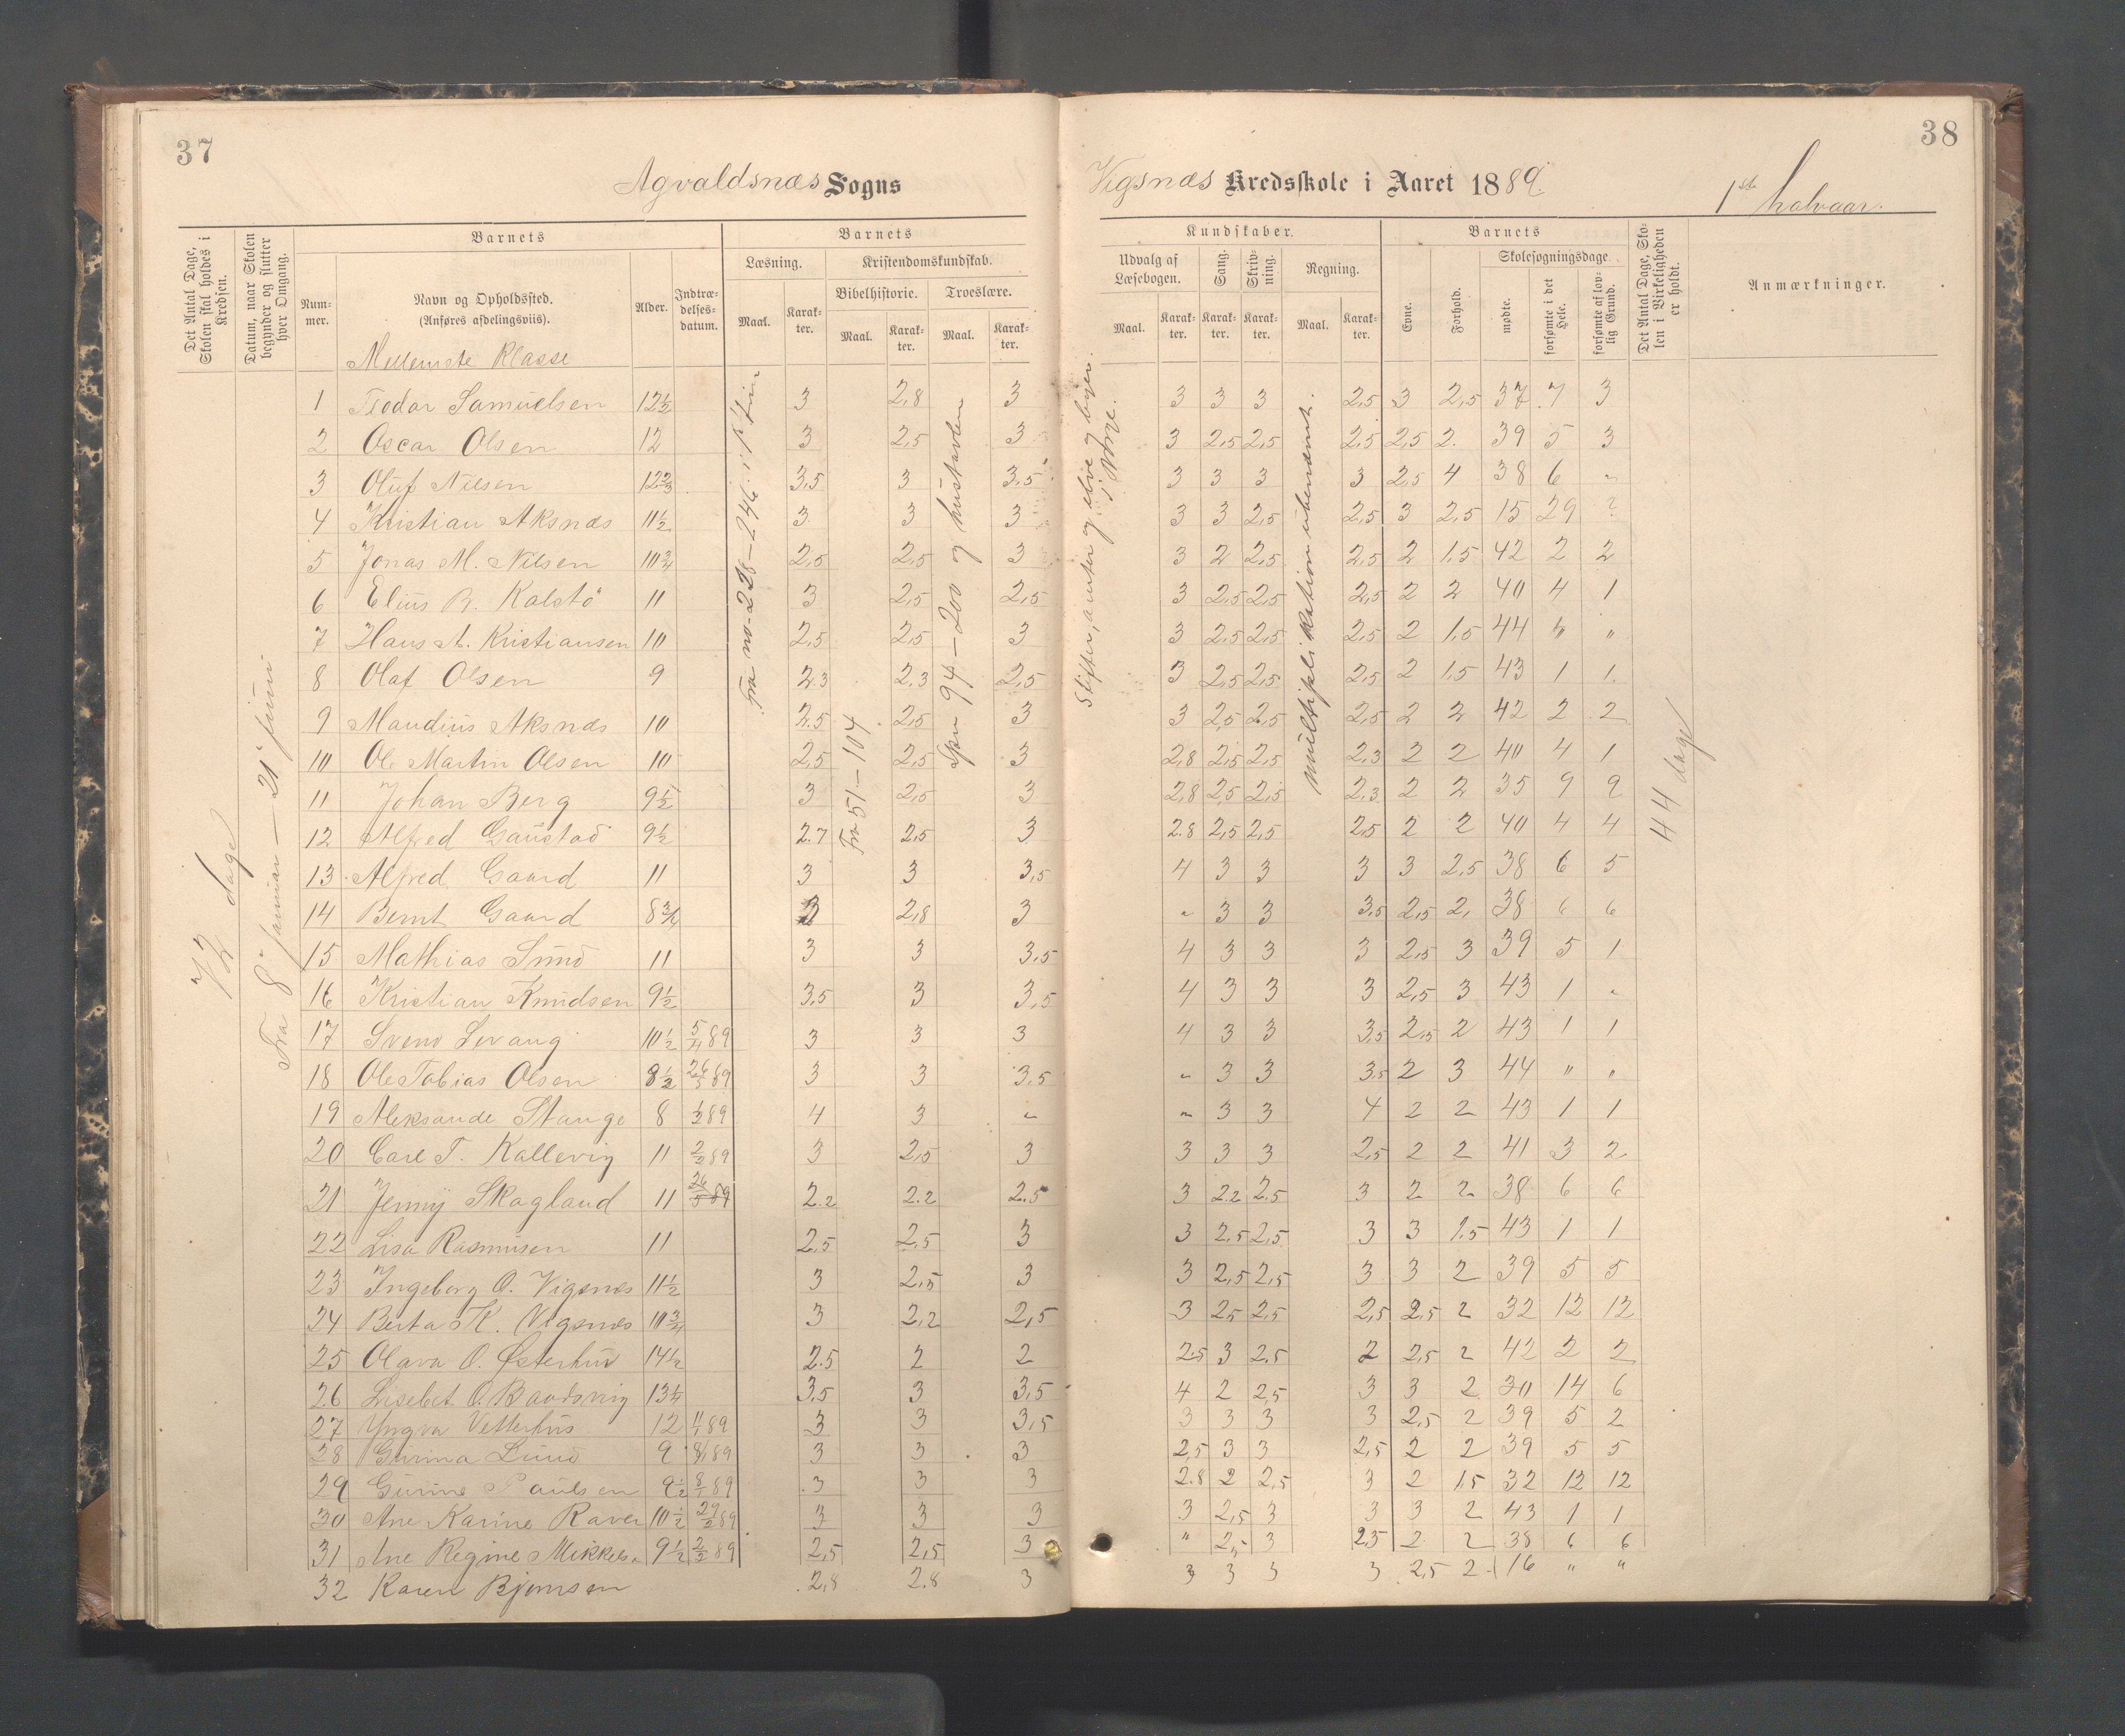 37
Agvaldsnæs Sogns
Det Antal Dage, Skolen skal holdes i Kredsen.
Datum, naar Skolen begynder og slutter hver Omgang.
Barnets
Nummer.
Navn og Opholdssted.
(Anføres afdelingsviis).
Alder.
Indtrædelsesdatum.
Barnets
Læsning.
Kristendomskundskab.
Bibelhistorie.
Troeslære.
Maal. Karakter. Maal. Karakter. Maal. Karakter.
Mellemste Klasse
72 dage
Fra 8de januar — 21de juni
Fra no 228–246 i
Fra 51–104
Spm 94–200 og hustavlen
1 Teodor Samuelsen 12½ 3 2,8 3
2 Oscar Olsen 12 3 2,5 3
3 Oluf Nilsen 12⅔ 3,5 3 3,5
4 Kristian Aksnæs 11½ 3 3 3
5 Jonas M. Nilsen 10¾ 2,5 2,5 3
6 Elius B. Kalstø 11 3 2,5 2,5
7 Hans A. Kristiansen 10 2,5 2,5 3
8 Olaf Olsen 9 2.3 2.3 2,5
9 Mandius Aksnæs 10 2.5 2,5 3
10 Ole Martin Olsen 10 2,5 2,5 3
11 Johan Berg 9½ 3 2,5 3
12 Alfred Gaustad 9½ 2.7 2,5 3
13 Alfred Gaard 11 3 3 3,5
14 Bernt Gaard 8¾ 3 2,8 3
15 Mathias Lund 11 3 3 3,5
16 Kristian Knudsen 9½ 3,5 3 3,5
17 Svend Levang 10½ 5/4 89 3 3 3
18 Ole Tobias Olsen 8½ 26/3 89 3 3 3,5
19 Aleksande Stange 8 1/3 89 4 3 "
20 Carl T. Kallevig 11 2/2 89 3 2,5 3
21 Jenny Skagland 11 26/3 89 2.2 2.2 2.5
22 Lisa Rasmusen 11 2,5 2,5 3
23 Ingeborg O. Vigsnæs 11½ 3 2,5 3
24 Berta K. Vigsnæs 10¾ 3 2,2 2,5
25 Olava O. Østerhus 14½ 2.5 2 2
26 Lisebet O. Baadsvig 13½ 3,5 3 3,5
27 Yngva Vetterhus 12 11/1 89 3 3 3,5
28 Gurina Lund 9 8/1 89 3 3 3
29 Gurine Paulsen 9½ 8/1 89 3 3 3
30 Ane Karine Raven 10½ 29/2 89 3 3 3
31 Ane Regine Mikkels. 9½ 2/2 89 2,5 2,5 3
32 Karen Bjørnsen 2,8 2.8 3
38
Vigsnæs Kredsskole i Aaret 1889.
1ste halvaar.
Kundskaber.
Udvalg af Læsebogen.
Sang.
Skrivning.
Regning.
Maal. Karakter. Karakter. Karakter. Maal. Karakter.
Barnets
Evne.
Forhold.
Skolesøgningsdage
mødte.
forsømte i det Hele.
forsømte af lovlig Grund.
Det Antal Dage, Skolen i Virkeligheden er holdt.
Anmærkninger.
Stifter, amter og elve og byer i Norge.
Multiplikation ubenævnt.
44 dage
3 3 3 2,5 3 2,5 37 7 3
3 2,5 2,5 2,5 2,5 2. 39 5 3
3 3 3 3 2,5 4 38 6 "
3 3 2,5 2,5 3 2,5 15 29 ?
3 2 2,5 2,5 2 1,5 42 2 2
3 2,5 2,5 2,5 2 2 40 4 1
3 2,5 2,5 2,5 2 1,5 44 " "
3 2,5 2,5 2,5 2 1,5 43 1 1
3 2,5 2,5 2,5 2 2 42 2 2
2,8 2,5 2,5 2,3 2 2 40 4 1
2,8 2,5 2,5 2,3 2 2 35 9 9
2.8 2,5 2,5 2,5 2 2 40 4 4
4 3 3 3 3 2,5 38 6 5
" 3 3 3,5 2,5 2, 38 6 6
4 3 3 3 2,5 3 39 5 1
4 3 3 3 2,5 3 43 1 "
4 3 3 3,5 2,5 2 43 1 1
" 3 3 3,5 2 3 44 " "
" 3 3 4 2 2 43 1 1
3 3 3 2,5 2 2 41 3 2
3 2.2 2.5 3 2 2 38 6 6
3 2,5 2,5 3 3 1.5 43 1 1
3 2,5 2,5 3 3 2 39 5 5
3 2,5 2,5 2,5 2,5 2 32 12 12
2.5 3 2,5 2 2,5 2 42 2 2
4 2 2,5 3 3 2 30 14 6
3 3 3 3 2,5 2 39 5 2
2,5 3 3 2,5 2 2 39 5 5
2.8 2 2,5 3 2 1.5 32 12 12
3 2,5 3 3 3 2 43 1 1
" 2,5 3 2,5 2 2 38 6 6
3 3 3 3 2,5 2 16 " "